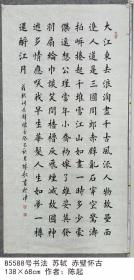 大江東去浪淘盡千古風流人物故壘西
邊人道是三國周郎赤壁亂石穿空驚濤
拍岸捲起千堆雪江山如畫一時多少豪
傑遙想公瑾當年小喬初嫁了雄姿英發
羽扇綸巾談笑間檣櫓灰飛煙滅故國神
遊多情應笑我早生華髮人生如夢一樽
還酹江月
B5588号书法 苏轼 赤壁怀古
138×68cm 作者：陈起